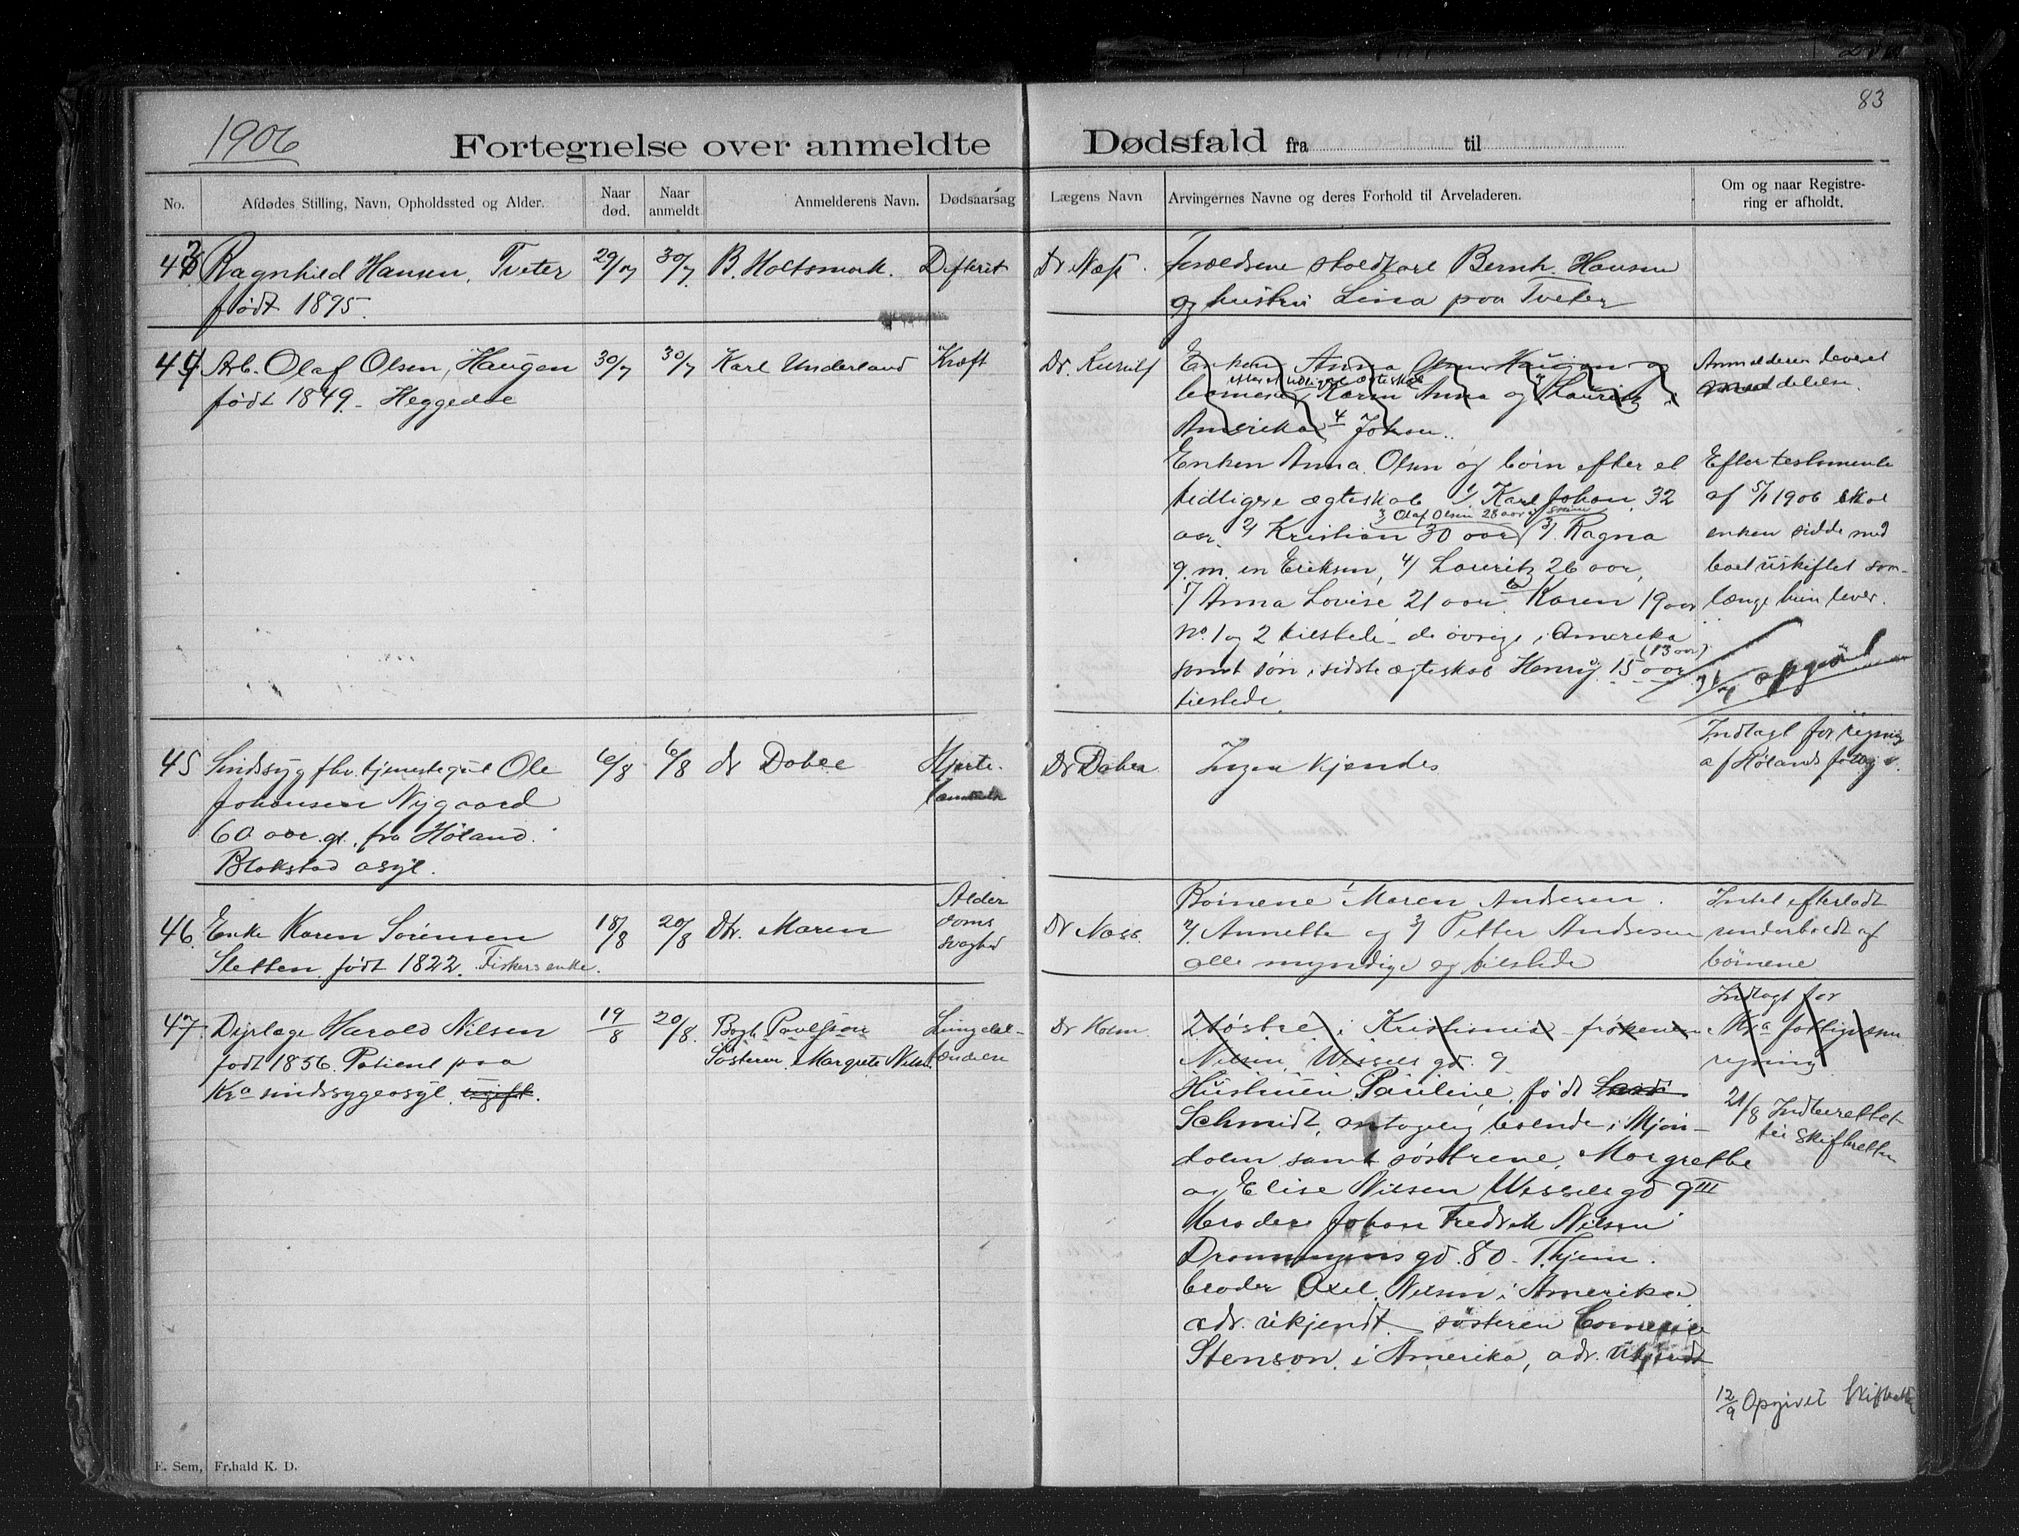 83
1906
Fortegnelse over anmeldte Dødsfald fra til
No.
Afdødes Stilling, Navn, Opholdssted og Alder.
Naar død.
Naar anmeldt
Anmelderens Navn.
Dødsaarsag
Lægens Navn
Arvingernes Navne og deres Forhold til Arveladeren.
Om og naar Registre-
ring er afholdt.
43 Ragnhild Hansen, Tveter
født 1895.
29/7
30/7
B. Holtsmark.
Difterit
Dr Næss.
Forældrene Hansen
og hustru Lina paa Tveter
44 Arb. Olaf Olsen, Haugen
født 1849. Heggedal
30/7
30/7
Karl Underland
Kræft
Dr.
Enken Anna Olsen Haugen og
efter et tidligere ægteskab
børnene, Karen Anna og Lauritz i
Amerika 4 Johan..
Enken Anna Olsen og børn efter et
tidligere ægteskab 1/ Karl Johan, 32
3/ Olaf Olsen 28 aar
aar 2/ Kristian 30 aar, 3/ Ragna
g. m. en Eriksen, 4/ Lauritz 26 aar,
5/ Anna Lovise 21 aar 6/ Karen 19 aar
No. 1 og 2 tilstede – de øvrige i Amerika
(13 aar)
samt søn i sidste ægteskab Henry 15 aar
tilstede.
Anmelderen leveret
meddelelse.
Efter testamente
af 5/1 1906 skal
enken sidde med
boet uskiftet saa-
længe hun lever.
opgjort
45 Sindssyg fhv. tjenestegut Ole
Johansen Nygaard
60 aar gl. fra Høland.
Blakstad asyl.
6/8
6/8
dr Dobee
Hjerte-
Dr Dobee
Ingen kjendes
Indtagt for regning
af Hølands
46. Enke Karen Sørensen
Sletten, født 1822. Fiskers enke.
18/8
20/8
Dtr. Maren
Alder
doms
svaghed
Dr Næss
Børnene 1 Maren Andersen.
2/ Annette og 3/ Petter Andersen
alle myndige og tilstede
Intet efterladt
underholdt af
børnene
47. Dyrlæge Harald Nilsen
født 1856. Patient paa
Kra sindssygeasyl, ugift.
19/8
20/8.
Bogh. Paulsson
Søsteren, Margrete Nilsen
Lungebe-
tændelse
Dr Holm
2 søstre i Kristiania frøknene
Nilsen, Wessels gd. 9
Hustruen Pauline, født
Schmidt, antagelig boende i Mjøn-
dalen samt søstrene, Margrethe
og Elise Nilsen Wessels gd 9 III
broder Johan Fredrik Nilsen
Drammens gd. 80. Thjem.
broder Axel Nilsen i Amerika
adr. ukjendt. søsteren
Stenson i Amerika, adr. ukjendt
Indtagt for
Kra
regning
21/8 Indberettet
til skifteretten
12/9 Opgivet skifteretten
F. Sem, Fr.hald K. D.